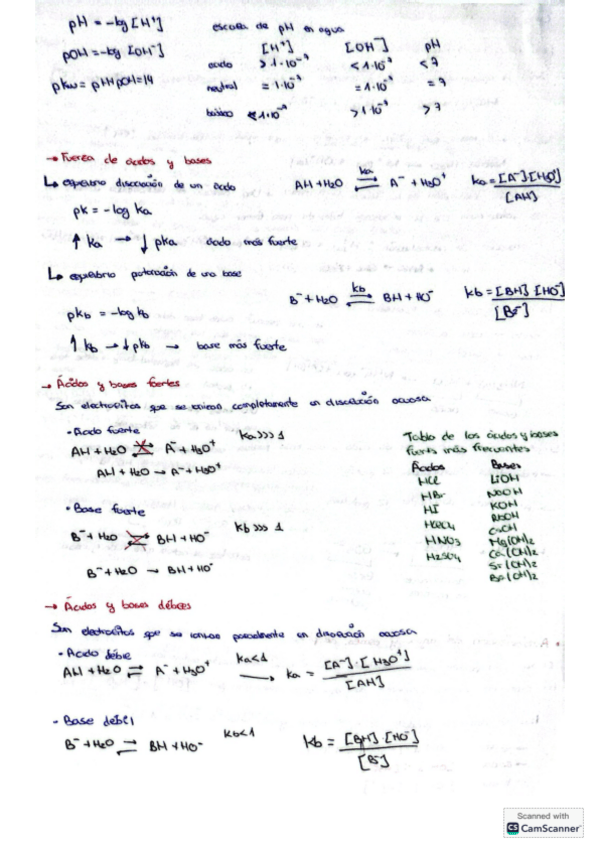 pH = -log [H⁺]
escala de pH en agua
pOH = -log [OH⁻]
[H⁺] [OH⁻] pH
pKw = pH + pOH = 14
ácido > 1·10⁻⁷ < 1·10⁻⁷ < 7
neutral = 1·10⁻⁷ = 1·10⁻⁷ = 7
básico < 1·10⁻⁷ > 1·10⁻⁷ > 7
→ Fuerza de ácidos y bases
↳ equilibrio disociación de un ácido AH + H2O ⇌ A⁻ + H3O⁺ ka = [A⁻][H3O⁺] / [AH]
ka
pk = -log ka
↑ ka → ↓ pka ácido más fuerte
↳ equilibrio protonación de una base
B⁻ + H2O ⇌ BH + HO⁻ kb = [BH]·[HO⁻] / [B⁻]
kb
pkb = -log kb
↑ kb → ↓ pkb → base más fuerte
→ Ácidos y bases fuertes
Son electrolitos que se ionizan completamente en disolución acuosa
• Ácido fuerte ka >>> 1
AH + H2O ⇌ A⁻ + H3O⁺
AH + H2O → A⁻ + H3O⁺
• Base fuerte kb >>> 1
B⁻ + H2O ⇌ BH + HO⁻
B⁻ + H2O → BH + HO⁻
Tabla de los ácidos y bases
fuerts más frecuentes
Ácidos Bases
HCl LiOH
HBr NaOH
HI KOH
HClO4 RbOH
CsOH
HNO3 Mg(OH)2
H2SO4 Ca(OH)2
Sr(OH)2
Ba(OH)2
→ Ácidos y bases débiles
Son electrolitos que se ionizan parcialmente en disolución acuosa
• Ácido débil ka < 1
AH + H2O ⇌ A⁻ + H3O⁺ → ka = [A⁻]·[H3O⁺] / [AH]
• Base débil kb < 1
B⁻ + H2O ⇌ BH + HO⁻ kb = [BH]·[HO⁻] / [B⁻]
Scanned with
CS CamScanner